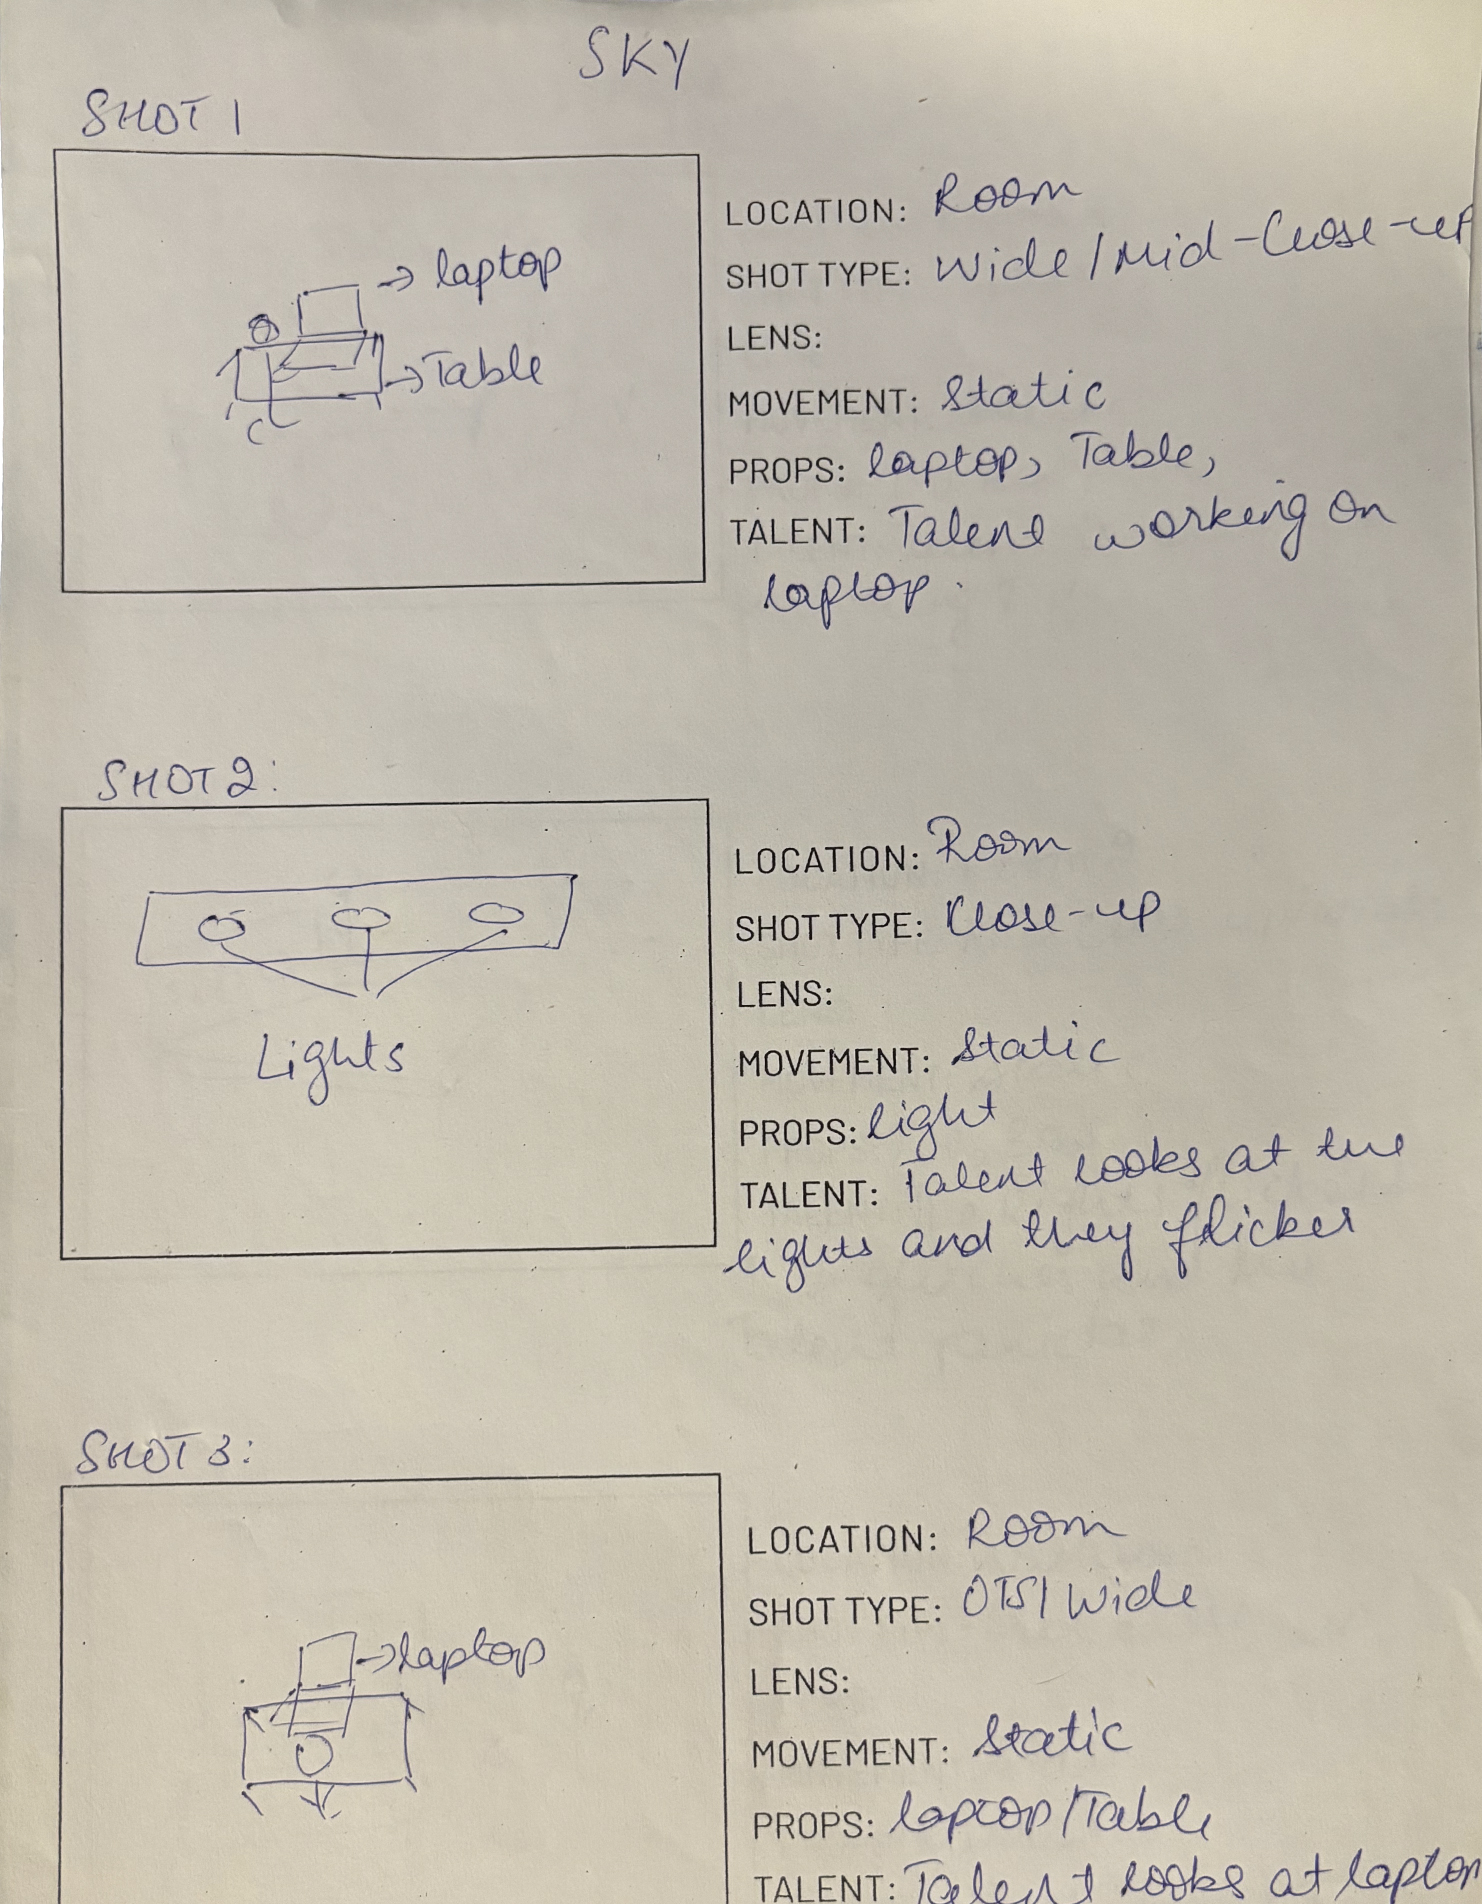 SKY
SHOT 1
laptop
Table
LOCATION: Room
SHOT TYPE: Wide / Mid-Close-up
LENS:
MOVEMENT: Static
PROPS: laptop, Table,
TALENT: Talent working on
laptop.
SHOT 2:
Lights
LOCATION: Room
SHOT TYPE: Close-up
LENS:
MOVEMENT: Static
PROPS: light
TALENT: Talent looks at the
lights and they flicker
SHOT 3:
laptop
LOCATION: Room
SHOT TYPE: OTS/Wide
LENS:
MOVEMENT: Static
PROPS: laptop/Table
TALENT: Talent looks at laptop